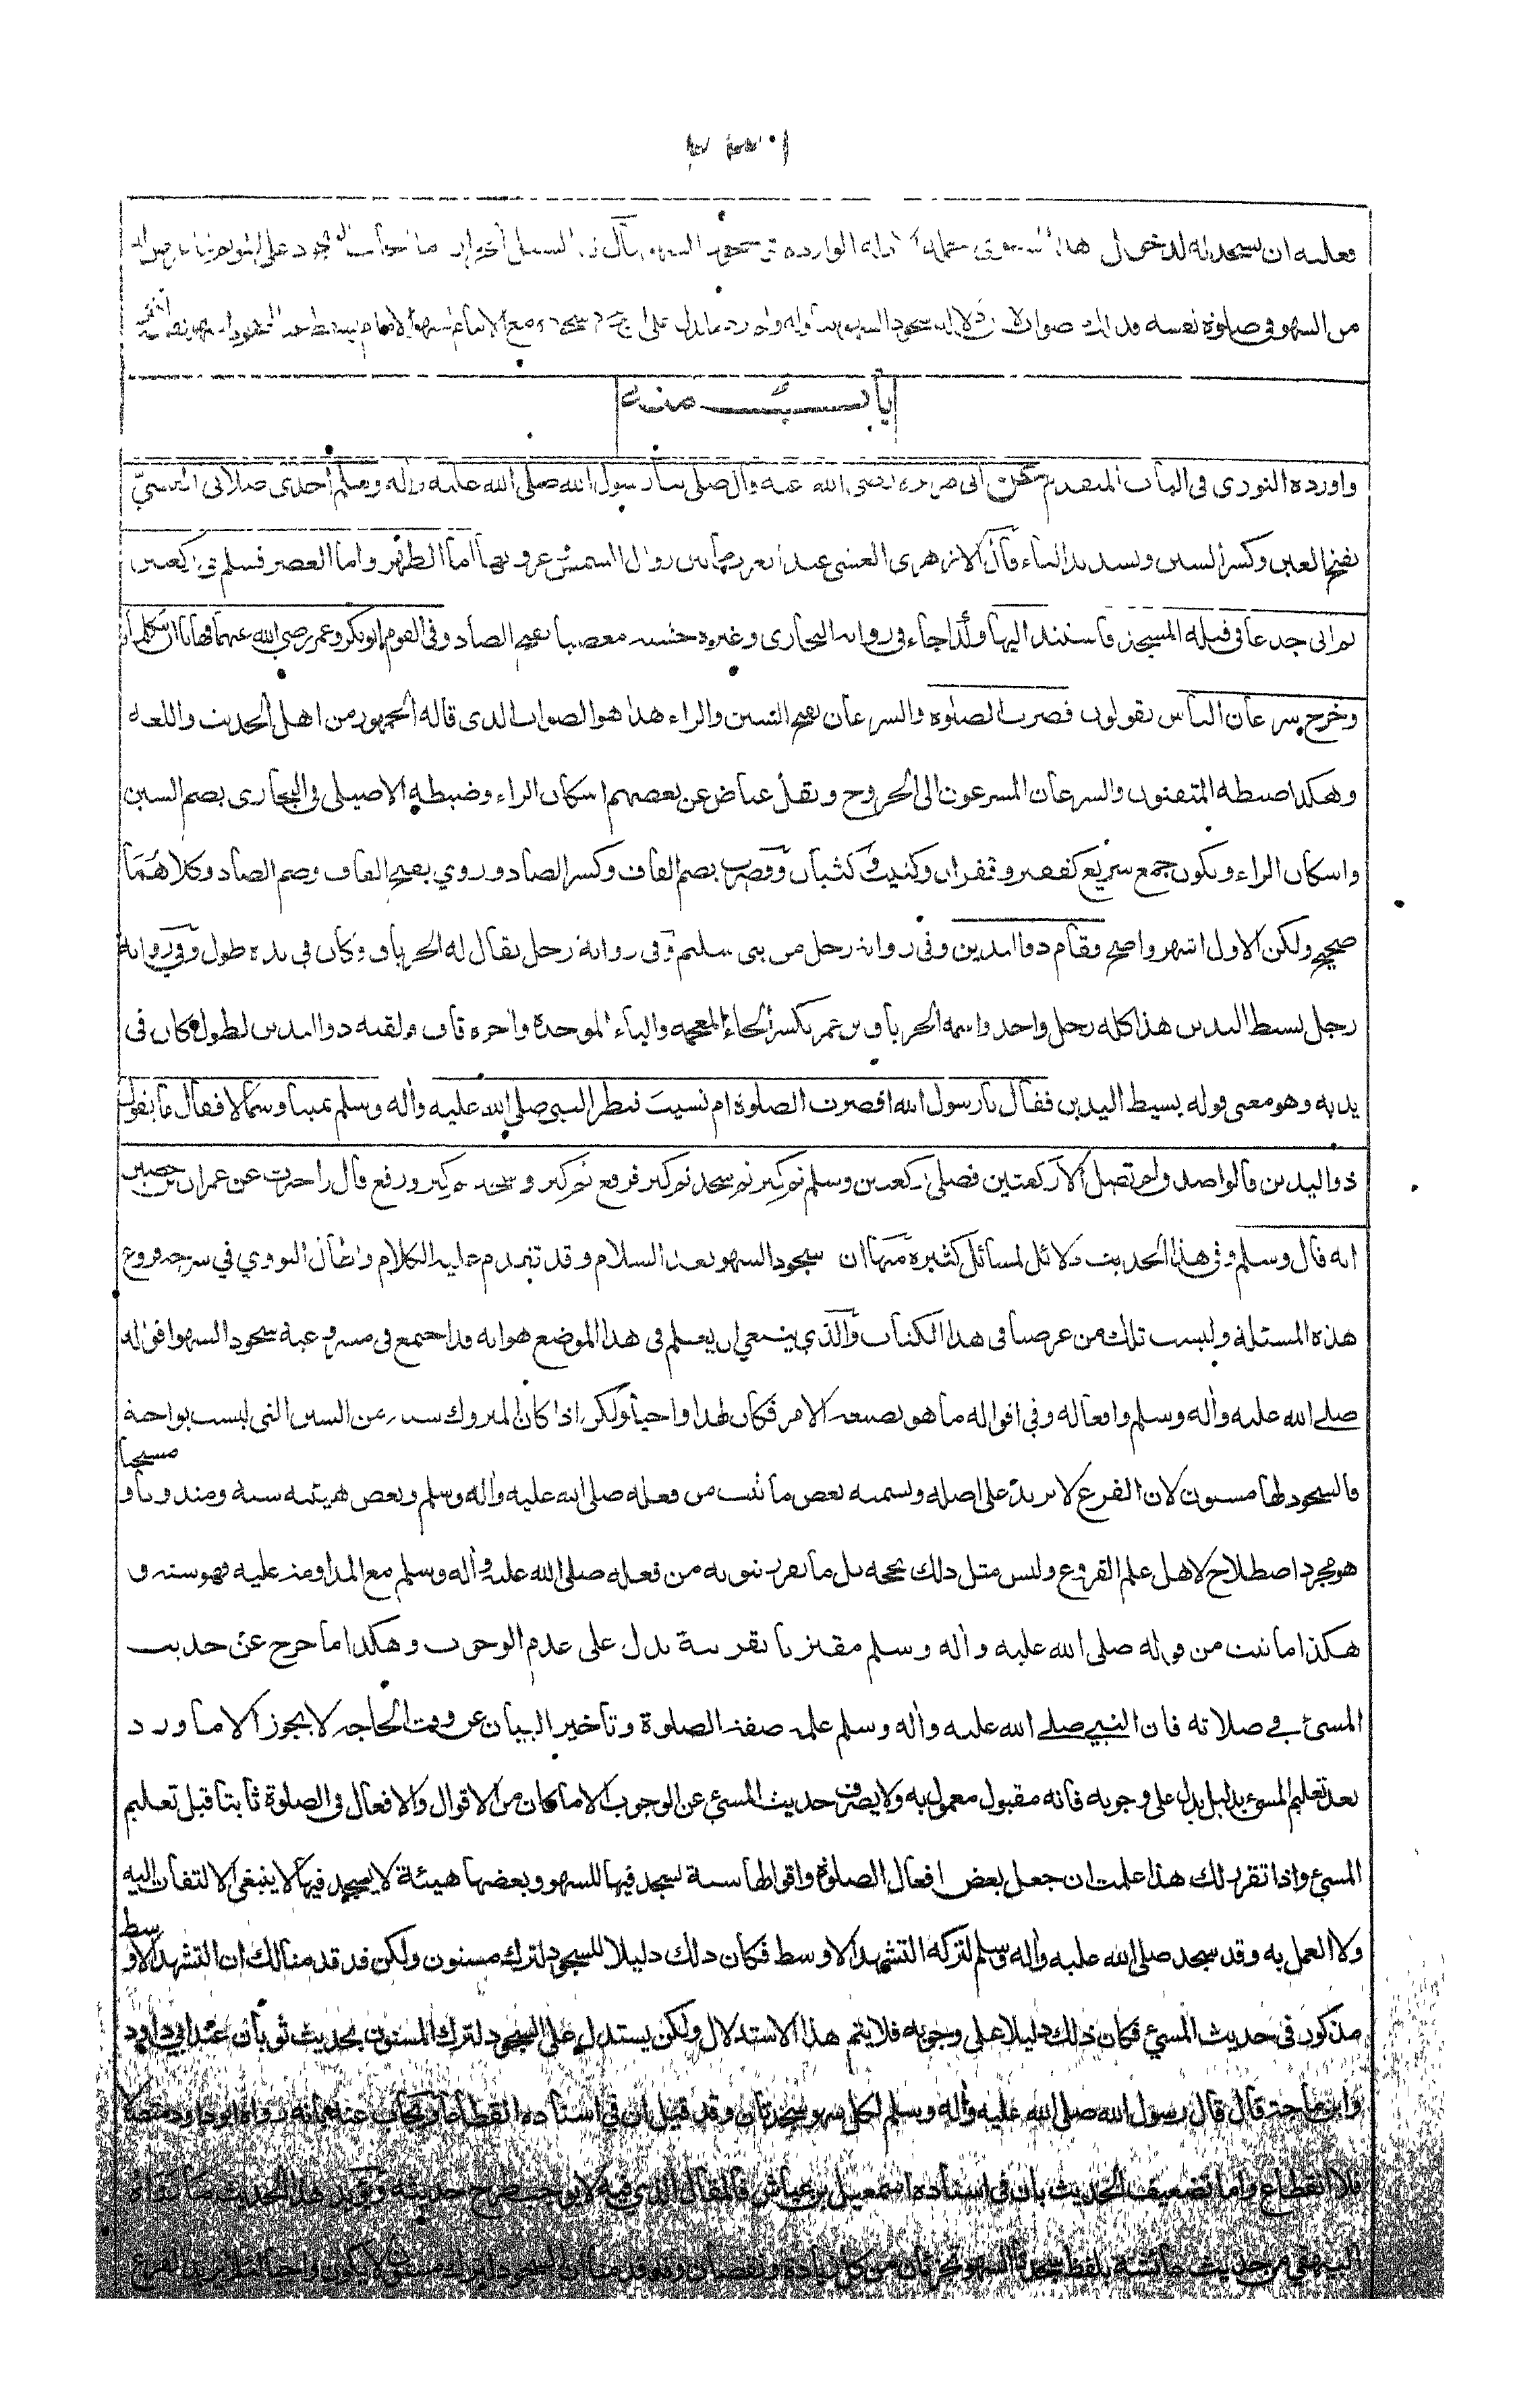 فعليه ان يسجد له لدخوله الواردة في سجود السهو
من السهو في صلوة نفسه سجود السهو مع الامام
باب منه
واورده النووي في الباب المتقدم عن ابي هريرة رضي الله عنه قال صلى بنا رسول الله صلى الله عليه واله وسلم احدى صلاتي العشي
بفتح العين وكسر الشين وتشديد الياء قال الازهري العشي عند العرب ما بين زوال الشمس وغروبها اما الظهر واما العصر فسلم في ركعتين
ثم اتى جذعا في قبلة المسجد فاستند اليها وكذا جاء في رواية البخاري وغيره خشبة مغضبا بفتح الضاد وفي القوم ابو بكر وعمر رضي الله عنهما فهابا ان يتكلما
وخرج سرعان الناس يقولون قصرت الصلوة والسرعان بفتح السين والراء هذا هو الصواب الذي قاله الجمهور من اهل الحديث واللغة
وهكذا ضبطه المتقنون والسرعان المسرعون الى الخروج ونقل عياض عن بعضهم اسكان الراء وضبطه الاصيلي في البخاري بضم السين
واسكان الراء ويكون جمع سريع كقفيز وقفزان وكثيب وكثبان وقصرت بضم القاف وكسر الصاد وروي بفتح القاف وضم الصاد وكلاهما
صحيح ولكن الاول اشهر واصح وقام ذو اليدين وفي رواية رجل من بني سليم وفي رواية رجل يقال له الخرباق وكان في يده طول وفي رواية
رجل بسيط اليدين هذا كله رجل واحد واسمه الخرباق بن عمر بكسر الخاء المعجمة والباء الموحدة واخره قاف ولقبه ذو اليدين لطول كان في
يديه وهو معنى قوله بسيط اليدين فقال يا رسول الله اقصرت الصلوة ام نسيت فنظر النبي صلى الله عليه واله وسلم يمينا وشمالا فقال ما يقول
ذو اليدين قالوا صدق ولم تصل الا ركعتين فصلى ركعتين وسلم ثم كبر ثم سجد ثم كبر فرفع ثم كبر وسجد ثم كبر ورفع قال واخبرت عن عمران بن حصين
انه قال وسلم وفي هذا الحديث دلائل لمسائل كثيرة منها ان سجود السهو بعد السلام وقد تقدم عليه الكلام واطال النووي في شرحه فروع
هذه المسئلة وليست تلك من غرضنا في هذا الكتاب والذي ينبغي ان يعلم في هذا الموضع هو انه قد اجتمع في مشروعية سجود السهو اقواله
صلى الله عليه واله وسلم وافعاله وفي اقواله ما هو بصيغة الامر فكان لهذا واجبا ولكن اذا كان المتروك سنة من السنن التي ليست بواجبة
فالسجود لها مسنون لان الفرع لا يزيد على اصله وتسمية بعض ما ثبت من فعله صلى الله عليه واله وسلم وبعض هيئته سنة ومندوبا و مستحبا
هو مجرد اصطلاح لاهل علم الفروع وليس مثل ذلك بحجة بل ما تقرر ثبوته من فعله صلى الله عليه واله وسلم مع المداومة عليه فهو سنة و
هكذا ما ثبت من قوله صلى الله عليه واله وسلم مقترنا بقرينة تدل على عدم الوجوب وهكذا ما خرج عن حديث
المسئ في صلاته فان النبي صلى الله عليه واله وسلم علمه صفة الصلوة وتاخير البيان عن وقت الحاجة لا يجوز الا ما ورد
بعد تعليم المسئ بدليل يدل على وجوبه فانه مقبول معمول به ولا يصرف حديث المسئ عن الوجوب الا ما كان من الاقوال والافعال في الصلوة ثابتا قبل تعليم
المسئ واذا تقرر لك هذا علمت ان جعل بعض افعال الصلوة واقوالها سنة يسجد فيها للسهو وبعضها هيئة لا يسجد فيها لا ينبغي الالتفات اليه
ولا العمل به وقد سجد صلى الله عليه واله وسلم لتركه التشهد الاوسط فكان ذلك دليلا للسجود لترك مسنون ولكن قد قدمنا لك ان التشهد الاوسط
مذكور في حديث المسئ فكان ذلك دليلا على وجوبه فلا يتم هذا الاستدلال ولكن يستدل على السجود لترك المسنون بحديث ثوبان عند ابي داود
وابن ماجة قال قال رسول الله صلى الله عليه واله وسلم لكل سهو سجدتان وقد قيل ان في اسناده انقطاعا ويجاب عنه بانه رواه ابو داود متصلا
فلا انقطاع واما تضعيف الحديث بان في اسناده اسمعيل بن عياش فالمقال الذي فيه لا يوجب طرح حديثه ويؤيد هذا الحديث ما رواه
البيهقي من حديث عائشة بلفظ سجدتا السهو تجزئان من كل زيادة ونقصان وقد قدمنا ان السجود لترك مسنون لا يكون واجبا لئلا يزيد الفرع